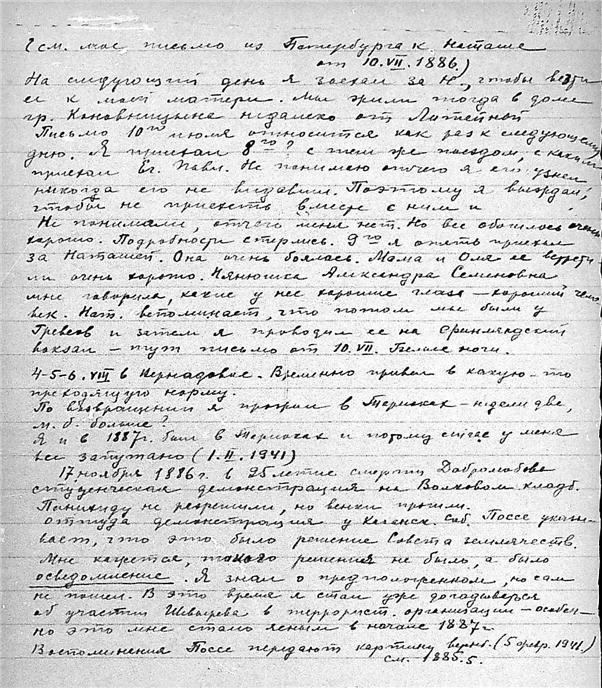 (см. мое письмо из Петербурга к Наташе
от 10.VII.1886.)
На следующий день я заехал за Н., чтобы везти
ее к моей матери. Мы жили тогда в доме
гр. Коновницына недалеко от Литейной
Письмо 10го июля относится как раз к следующему
дню. Я приехал 8го? с тем же поездом, с каким
приехал Ег. Павл. Не понимаю отчего я его узнал
никогда его не видавши. Поэтому я выждал,
чтобы не приехать вместе с ним и
Не понимали, отчего меня нет. Но все обошлось очень
хорошо. Подробности стерлись. 9го я опять приехал
за Наташей. Она очень боялась. Мама и Оля ее встрети
ли очень хорошо. Нянюшка Александра Семеновна
мне говорила, какие у нее хорошие глаза – хороший чело
век. Нат. вспоминает, что потом мы были у
Гревсов и затем я проводил ее на Финляндский
вокзал – тут письмо от 10.VII. Белые ночи.
4-5-6.VIII в Вернадовке. Временно привел в какую-то
преходящую норму.
По возвращении я прожил в Териоках недели две,
м. б. больше?
Я и в 1887г. был в Териоках и потому сейчас у меня
все запутано (1.II.1941)
17 ноября 1886 г. в 25 летие смерти Добролюбова
студенческая демонстрация на Волковом кладб.
Панихиду не разрешили, но венки прошли.
Оттуда демонстрация у Казанск. соб. Поссе указы-
вает, что это было решение Совета землячеств.
Мне кажется, такого решения не было, а было
осведомление. Я знал о предположенном, но сам
не пошел. В это время я стал уже догадываться
об участии Шевырева в террорист. организации – особен-
но это мне стало ясным в начале 1887г.
Воспоминания Поссе передают картину верно. (5 февр. 1941)
см. 1885.5.